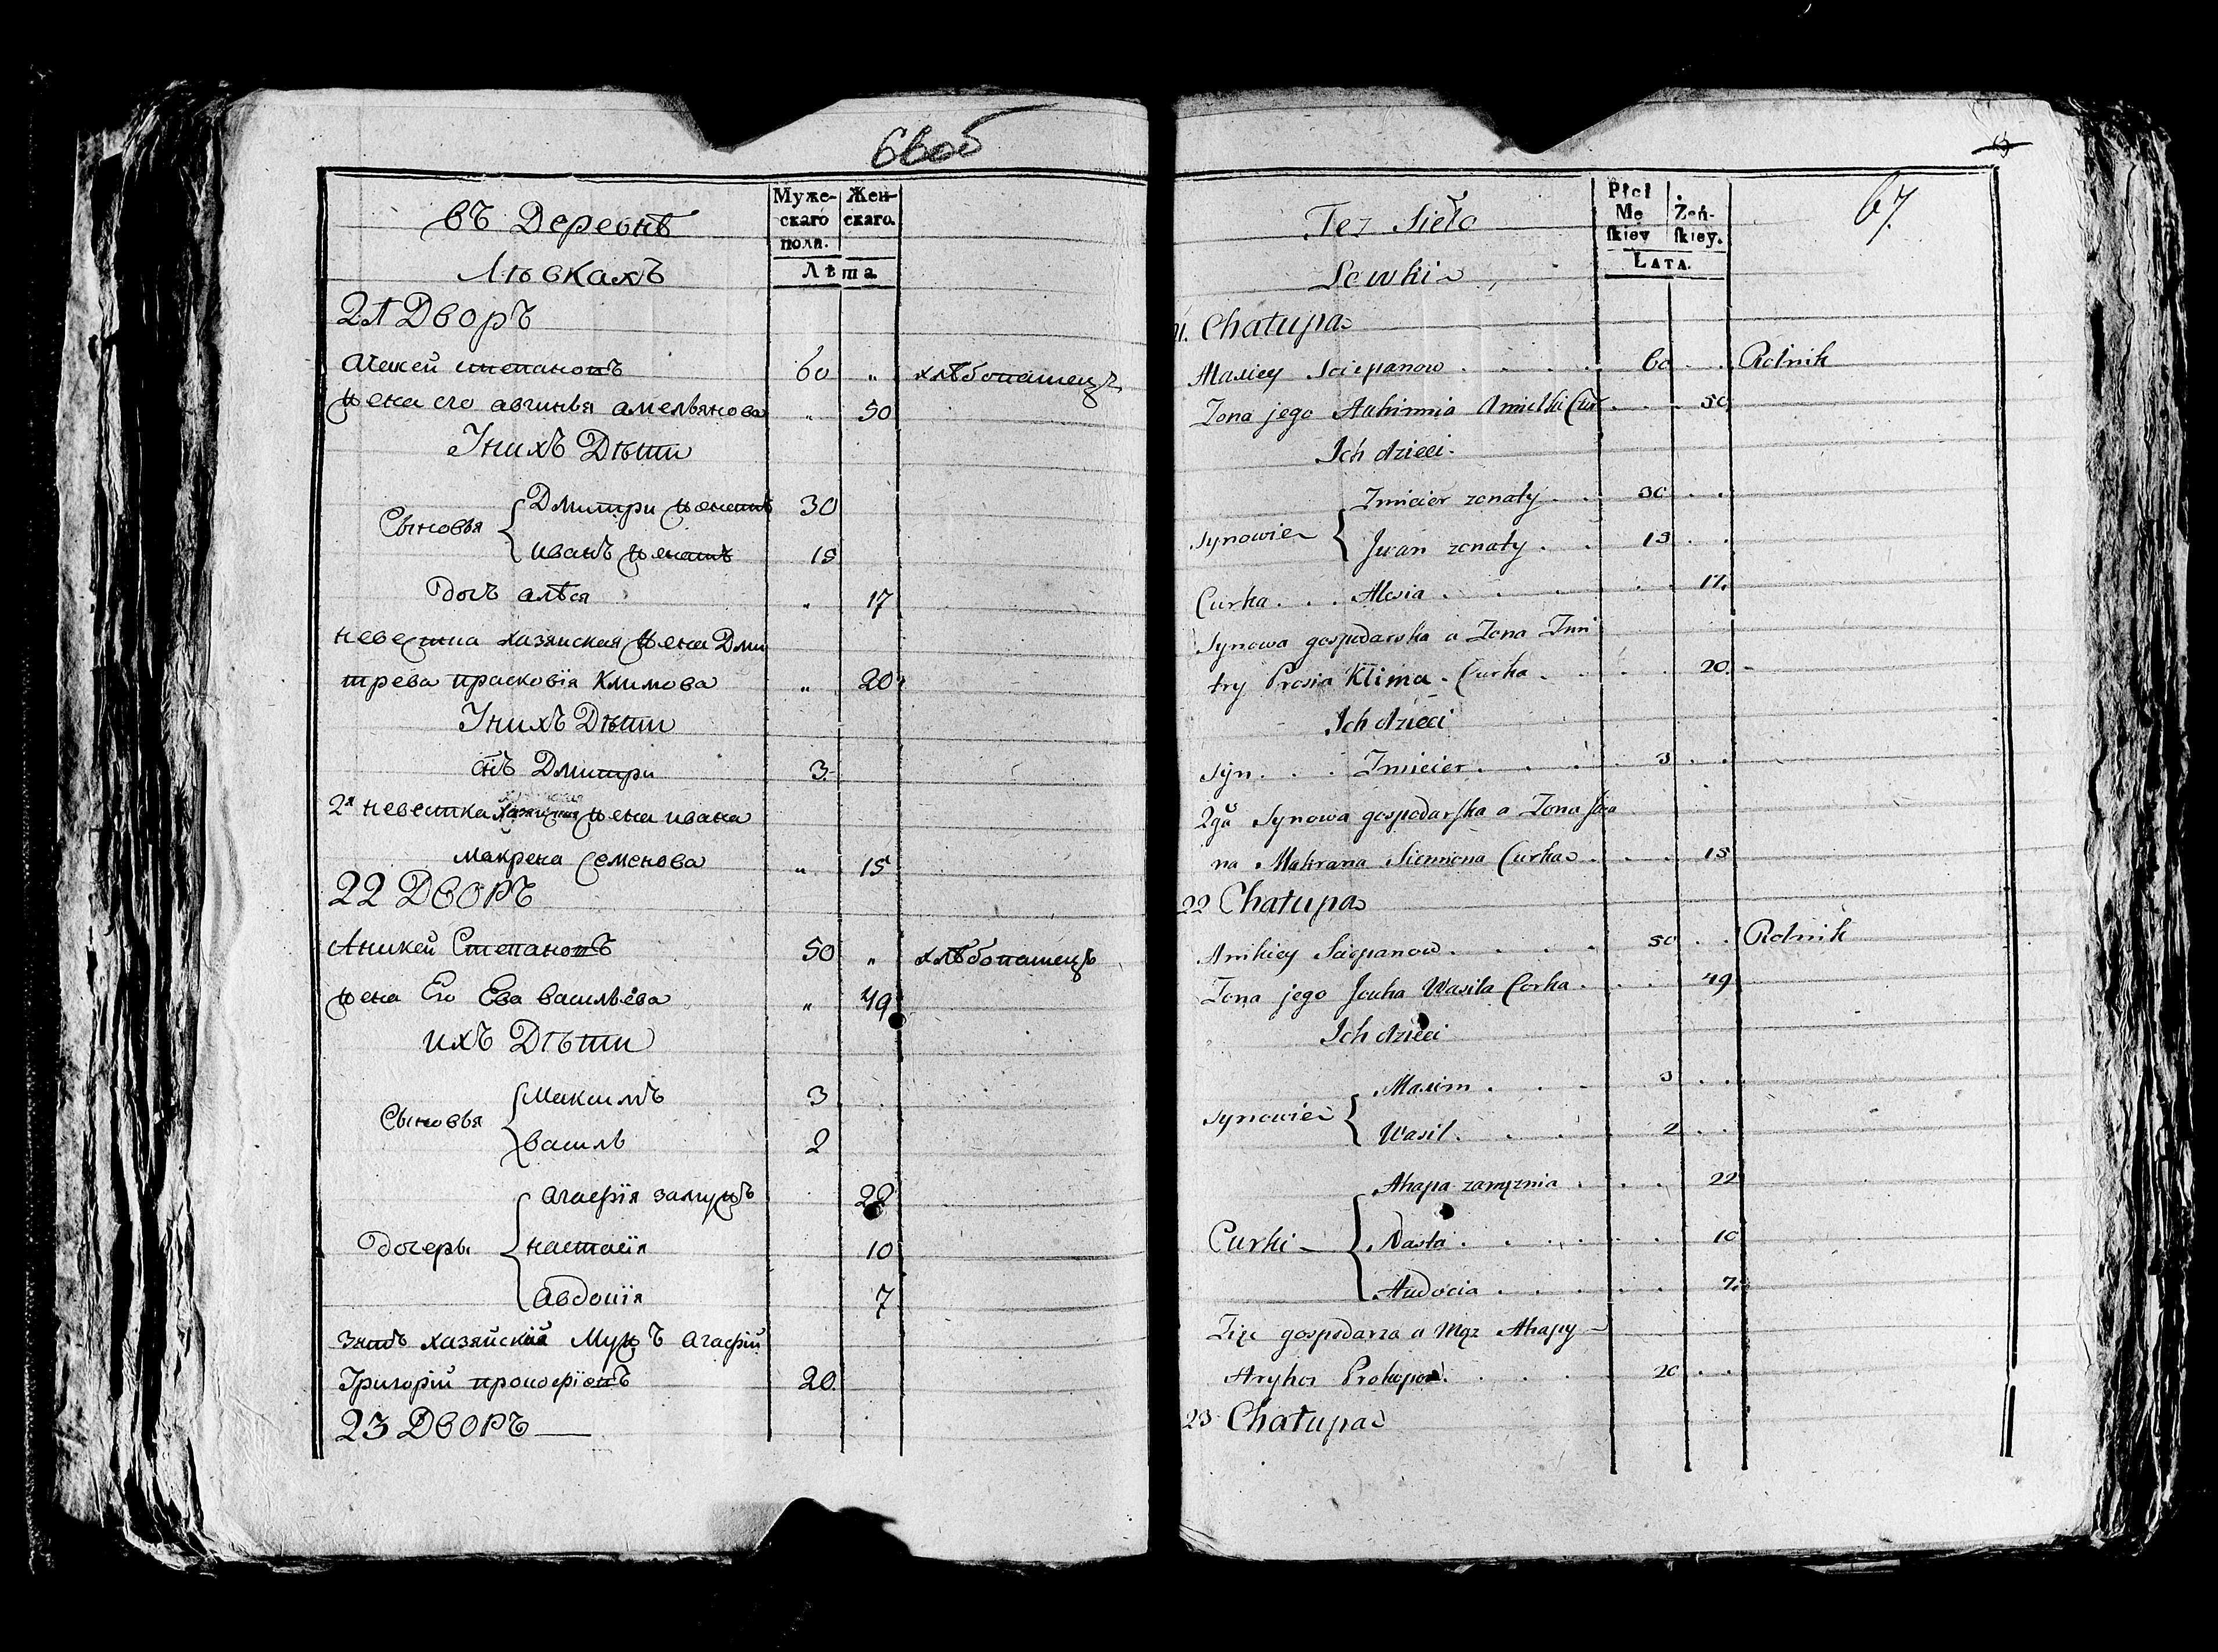 66об
Муже-
скаго
полн.
Жен-
скаго.
Лѣта
въ Деревнѣ
Лѣвкахъ
21 Дворъ
Алексей степановъ 60 „ хлѣбопашецъ
жена его авгинья амельянова „ 50
У нихъ Дѣти
Сыновья { Дмитри женатъ 30
иванъ женатъ 15
Дочь алѣся „ 17
невестка хазяиская жена Дми
трева прасковія Климова „ 20
У нихъ Дѣти
снъ Дмитри 3
2я невестка жена ивана
макрена Семенова „ 15
22 Дворъ
Аникей Степановъ 50 „ хлѣбопашецъ
жена Его Ева васильева „ 49
ихъ Дѣти
Сыновья { Максимъ 3
василь 2
Дочеры { агафія замужъ 22
настасія 10
Авдоція 7
зять хазяйский Мужъ агафій
Григорій 20
23 Дворъ
67.
Płci
Mę
skiey
Żeń-
skiey.
LATA.
Tez Sieło
Lewki
21. Chałupa
Alaxiey Sciepanow 60 Rolnik
Zona jego Auhinnia Amielki Cur 50
Ich dzieci
Synowie { Zmicier zonaty 30
Jwan zonaty 15
Curka Alesia 17.
Synowa gospodarska a Zona Dmi
try Prosia Klima Curka 20.
Ich dzieci
Syn Zmicier 3
2ga Synowa gospodarska a Zona Iwa
na Makrana Siemiona Curka 15
22 Chałupa
Anikiey Sciepanow 50 Rolnik
Zona jego Jouka Wasila Corka 49
Ich dzieci
Synowie { Maxim 3
Wasil 2
Curki { Ahapa zamęznia 22
Nasta 10
Audocia 7.
Zięc gospodarza a Mąz Ahapy
Aryhor Prokopow 20
23 Chałupa